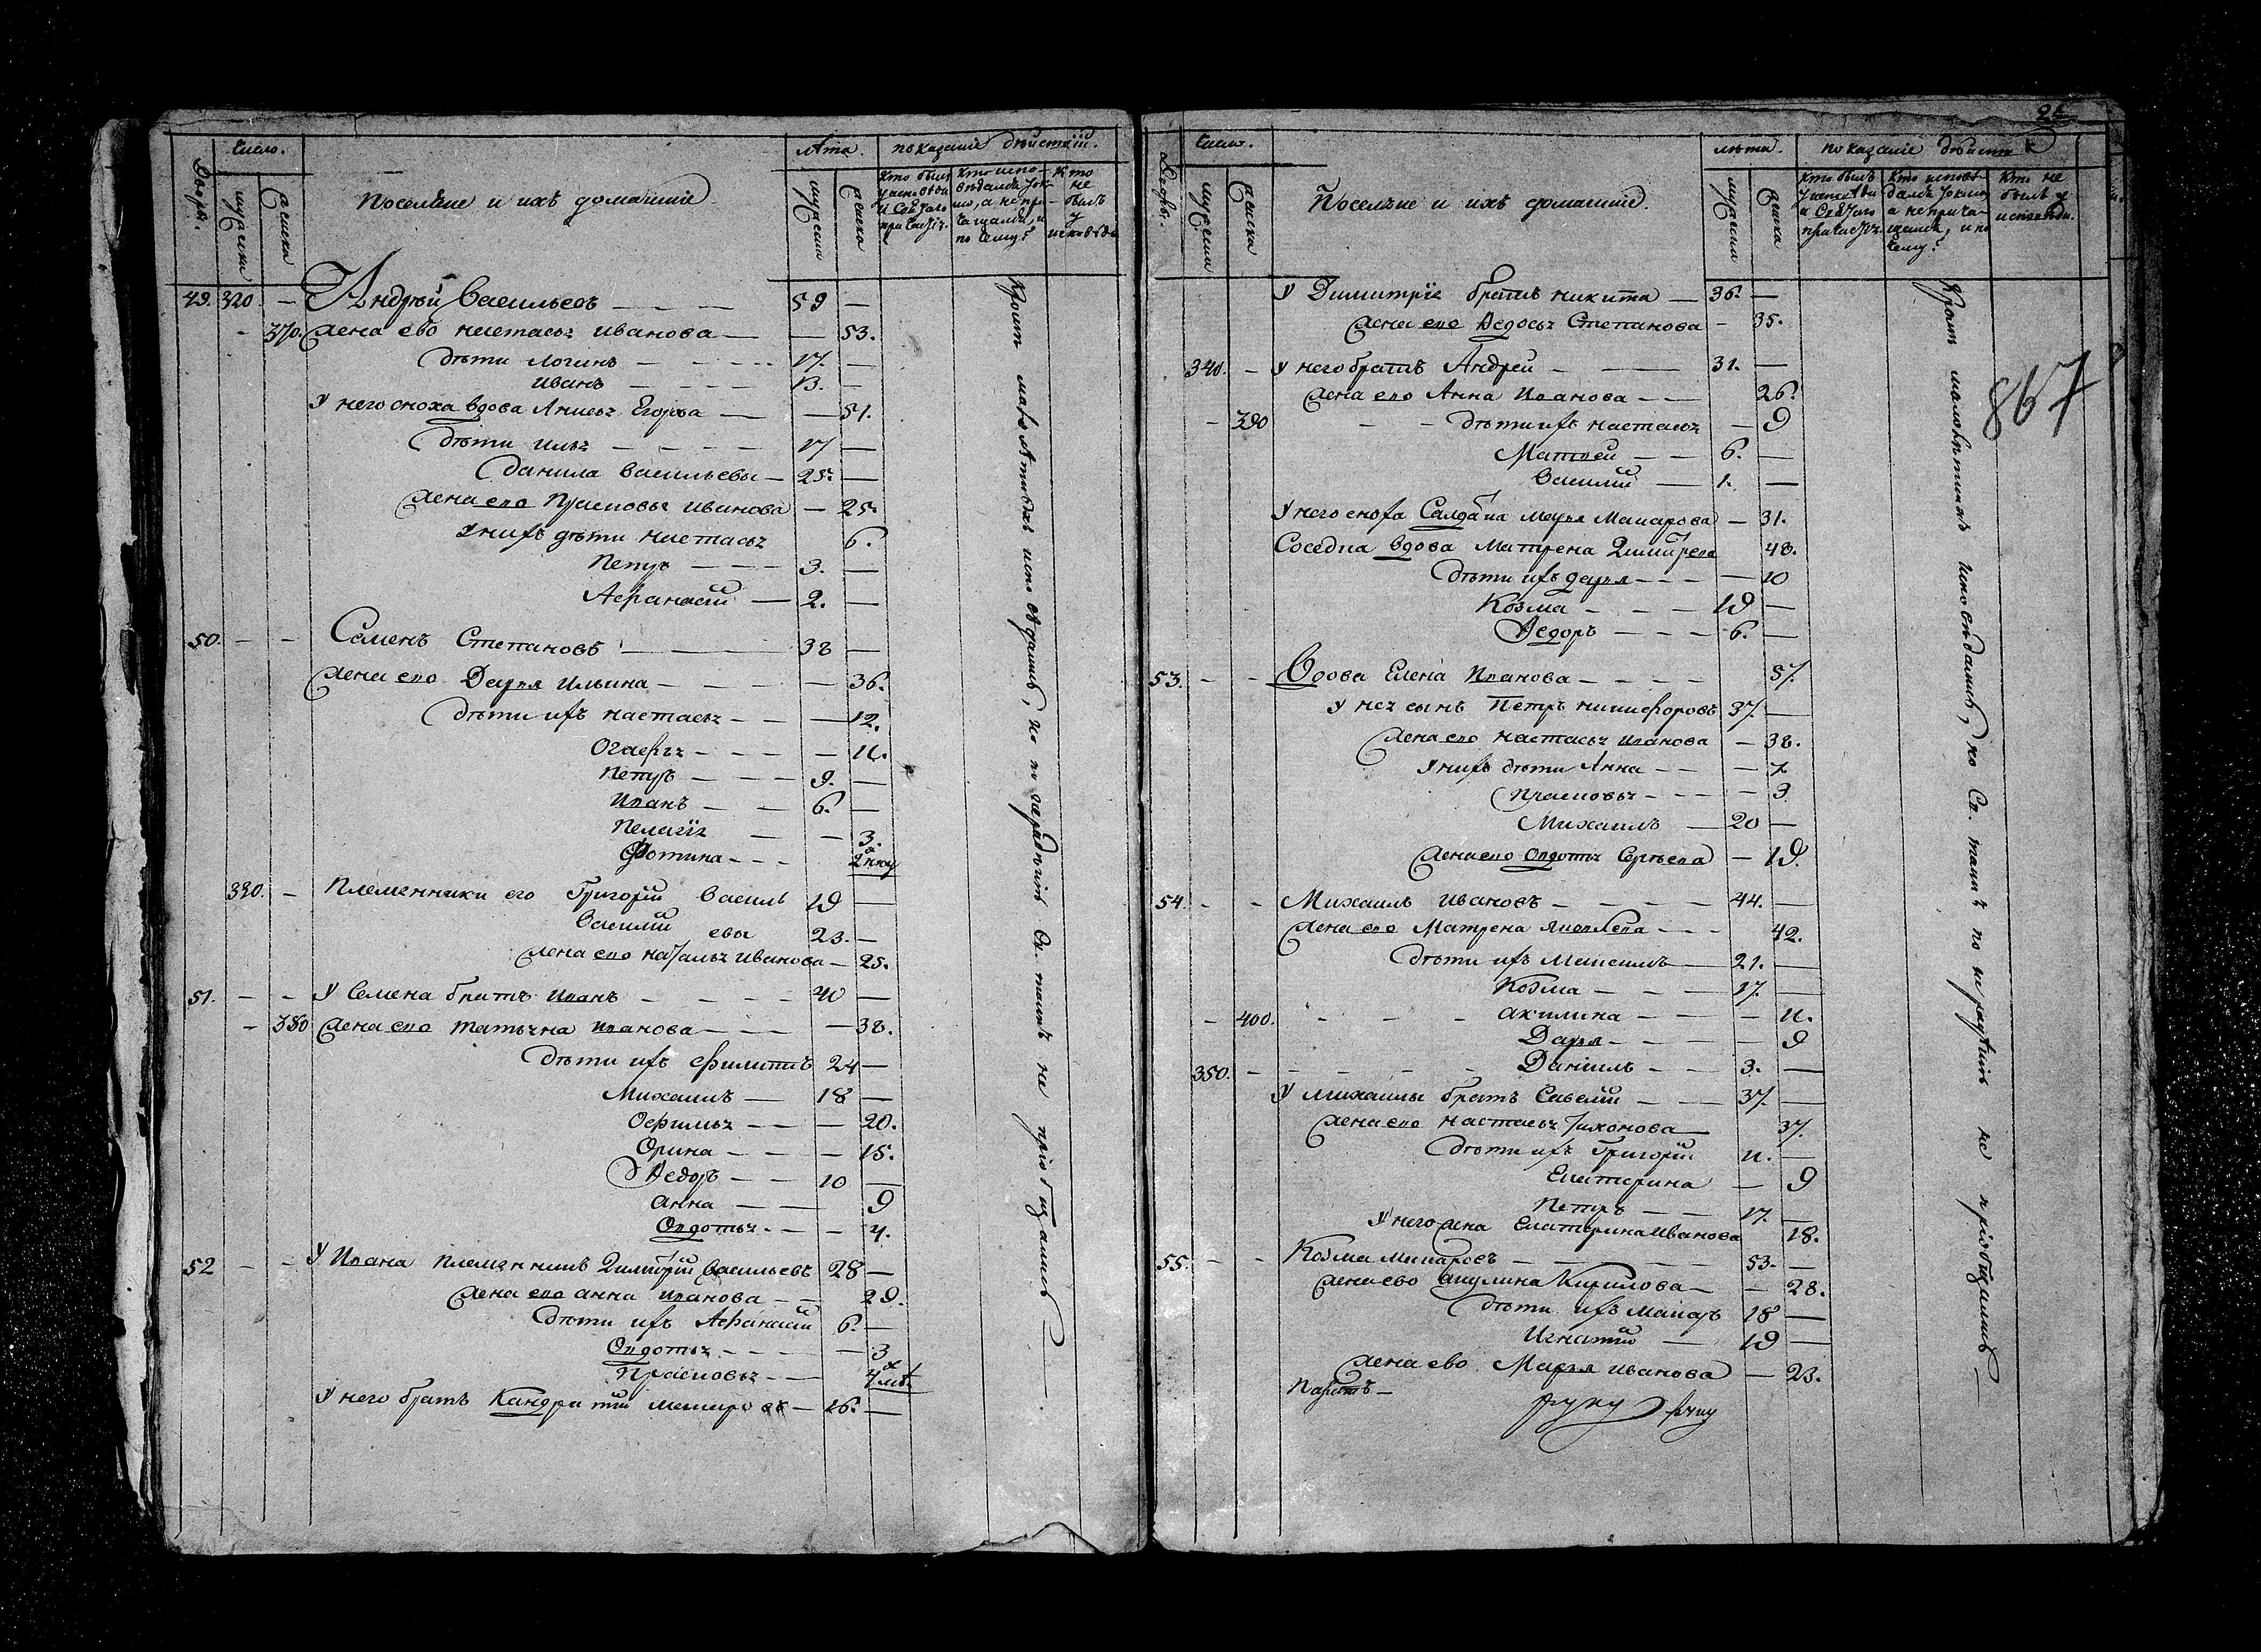 Дворы.
Число.
мужеска
женска
Поселяне и ихъ домашнiе
Лѣта.
мужеска
женска
показанiе дѣйствiй.
Кто былъ у исповѣди и Святаго причастiя.
Кто исповѣдался токмо, а не причащался, и по чему?
Кто не былъ у исповѣди
49. 320. — Андрей Васильевъ — 59 —
- 370. жена ево настасья иванова — — 53.
дѣти Логинъ — 17. —
иванъ — 13. —
У него сноха вдова Анисья Егорова — — 51.
дѣти илья — 17 —
данила васильевы — 25. —
жена его Прасковья иванова — 25.
У нихъ дѣти настасья 6.
Петръ — 3. —
Афанасiй — 2. —
50. - - Семенъ Степановъ — 38 —
жена его Дарья ильина — — 36.
дѣти ихъ настасья — — 12.
Огафья — — 11.
Петръ — 9. —
Иванъ — 6. —
Пелагiя — — 3.
Фотина —
330. - Племянники его Григорiй Василь 19 —
Василiй евы 23. —
жена его наталья иванова — 25.
51. - - У Семена братъ Иванъ — 40 —
- 380 жена его татьяна иванова — — 38.
дѣти ихъ филиппъ 24 —
Михаилъ — 18 —
Офимья — — 20.
Орина — — 15.
Ѳедоръ — 10 —
анна — 9
Овдотья — — 4.
52 - - У Ивана племянникъ Димитрiй Васильевъ 28 —
жена его анна иванова — 29.
дѣти ихъ Афанасiй 6. —
Овдотья — — 3
Прасковья —
У него братъ Кандратiй — 16. —
Кромѣ малолѣтныхъ исповѣдались, но по нерадѣнiю Св. таинъ не прiобщались —
867
Дворы.
Число.
мужеска
женска
Поселяне и ихъ домашнiе.
лѣта.
мужеска
женска
показанiе дѣйств
Кто былъ у исповѣди и Святаго причастiя.
Кто исповѣдался токмо, а не причащался, и по чему?
Кто не былъ у исповѣди.
У Димитрiя братъ никита — 36. —
жена его Ѳедосья Степанова — 35.
340. - У него братъ Андрей — 31. —
жена его Анна Иванова — 26.
- 390 - - дѣти ихъ настасья — 9
Матвей — 6. —
Василiй — 1. —
У него сноха Салдатка Марья Макарова — 31.
Соседка вдова Матрена 48.
дѣти ихъ дарья — — 10
Козма — 19 —
Ѳедоръ — 6. —
53. - - Вдова Елена Иванова — 57.
У нея сынъ Петръ никифоровъ 37. —
жена его настасья иванова — 38.
У нихъ дѣти Анна — — 7
Прасковья — — 3
Михаилъ — 20 —
жена его Овдотья Сергѣева — 19.
54. - - Михаилъ ивановъ — 44. —
жена его Матрена Яковлева — 42.
дѣти ихъ Максимъ — 21. —
Козма — 17. —
- 400. - акилина — — 11.
Дарья — — 9
350. - Данiилъ — 3. —
У михаилы братъ Савелiй — 37. —
жена его настасья тихонова — 37.
дѣти ихъ Григорiй 11. —
Екатерина — 9
Петръ — 17. —
У него жена Екатерина иванова 18.
55. - - Козма макаровъ — 53. —
жена ево акулина Кирилова — — 28.
дѣти ихъ макаръ 18 —
Игнатiй — 19 —
жена ево Марья иванова — 23.
руку
Кромѣ малолѣтныхъ исповѣдались, но Св. таинъ по нерадѣнiю не прiобщались —